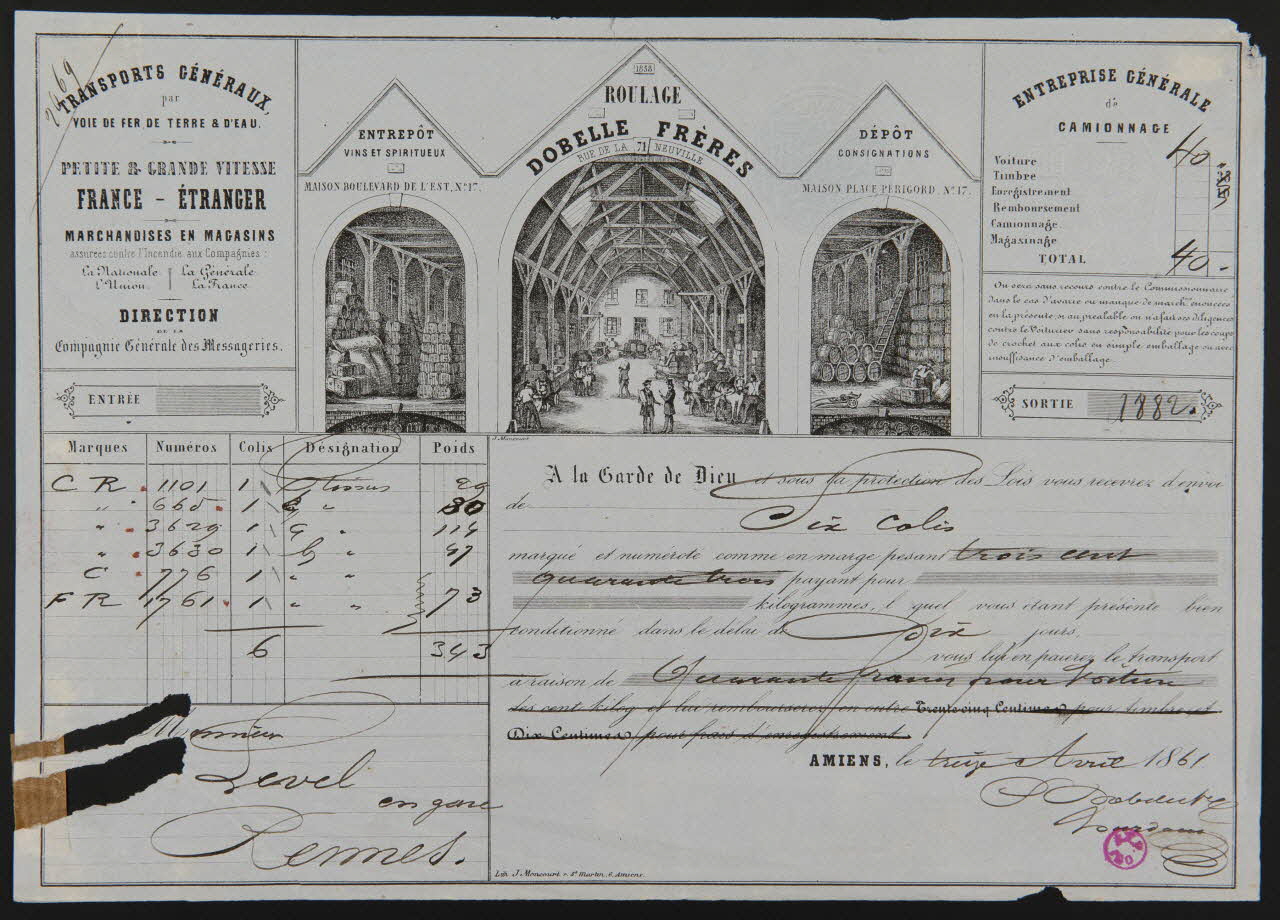 2469
TRANSPORTS GÉNÉRAUX,
par
VOIE DE FER DE TERRE & D'EAU.
PETITE & GRANDE VITESSE
FRANCE - ÉTRANGER
MARCHANDISES EN MAGASINS
assurées contre l'Incendie aux Compagnies:
La Nationale La Générale
L'Union. La France
DIRECTION
DE LA
Compagnie Générale des Messageries.
ENTRÉE
ENTREPÔT
VINS ET SPIRITUEUX
MAISON BOULEVARD DE L'EST, N.º 17.
1838
ROULAGE
DOBELLE FRÈRES
RUE DE LA 71 NEUVILLE
DÉPÔT
CONSIGNATIONS
MAISON PLACE PÉRIGORD. Nº 17.
J. Moncourt
ENTREPRISE GÉNÉRALE
de
CAMIONNAGE
Voiture 40 "
Timbre
Enregistrement
Remboursement
Camionnage
Magasinage
TOTAL 40 -
On sera sans recours contre le Commissionnaire
dans le cas d'avarie ou manque de march.ses énoncées
en la présente, si au préalable on n'a fait ses diligences
contre le Voiturier sans responsabilité pour les coups
de crochet aux colis en simple emballage ou avec
insuffisance d'emballage.
SORTIE 1882.
Marques Numéros Colis Désignation Poids
C R . 1101 1 tissus
" 665 . 1 " 80
" . 3629 1 " 114
" . 3630 1 " 47
C . 776 1 " "
F R 1761 . 1 " " 73
6 343
A la Garde de Dieu et sous la protection des Lois vous recevrez d'envoi
de
Six colis
marqué et numéroté comme en marge pesant trois cent
quarante trois payant pour
kilogrammes, l quel vous étant présenté bien
conditionné dans le délai de Dix jours,
vous lui en paierez le transport
à raison de Quarante francs pour Voiture
les cent kilog et lui rembourserez en outre Trente cinq Centimes pour timbre et
Dix Centimes pour frais d'enregistrement.
AMIENS, le treize Avril 1861
Monsieur
Level
en gare
Rennes.
Lith. J. Moncourt r. St Martin, 6, Amiens.